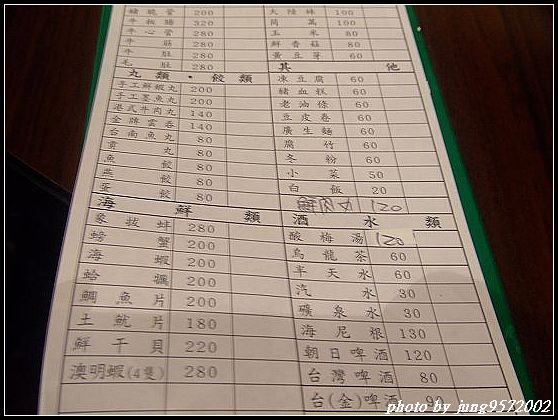 豬脆管 200
牛板腸 320
牛心管 280
牛筋 280
牛肚 280
毛肚 280
丸類・餃類
手工鮮蝦丸 200
手工墨魚丸 200
港式牛肉丸 140
金牌雲吞 140
台南魚丸 80
貢丸 80
魚餃 80
燕餃 80
蛋餃 80
海鮮類
象拔蚌 280
螃蟹 200
海蝦 200
蛤蠣 200
鯛魚片 200
土魠片 180
鮮干貝 220
澳明蝦(4隻) 280
大陸妹 100
茼萵 100
玉米 80
鮮香菇 80
黃豆芽 60
其他
凍豆腐 60
豬血糕 60
老油條 60
豆皮卷 60
廣生麵 60
腐竹 60
冬粉 60
小菜 50
白飯 20
120
酒水類
酸梅湯 120
烏龍茶 60
半天水 60
汽水 30
礦泉水 30
海尼根 130
朝日啤酒 120
台灣啤酒 80
台(金)啤酒 90
photo by jung9572002